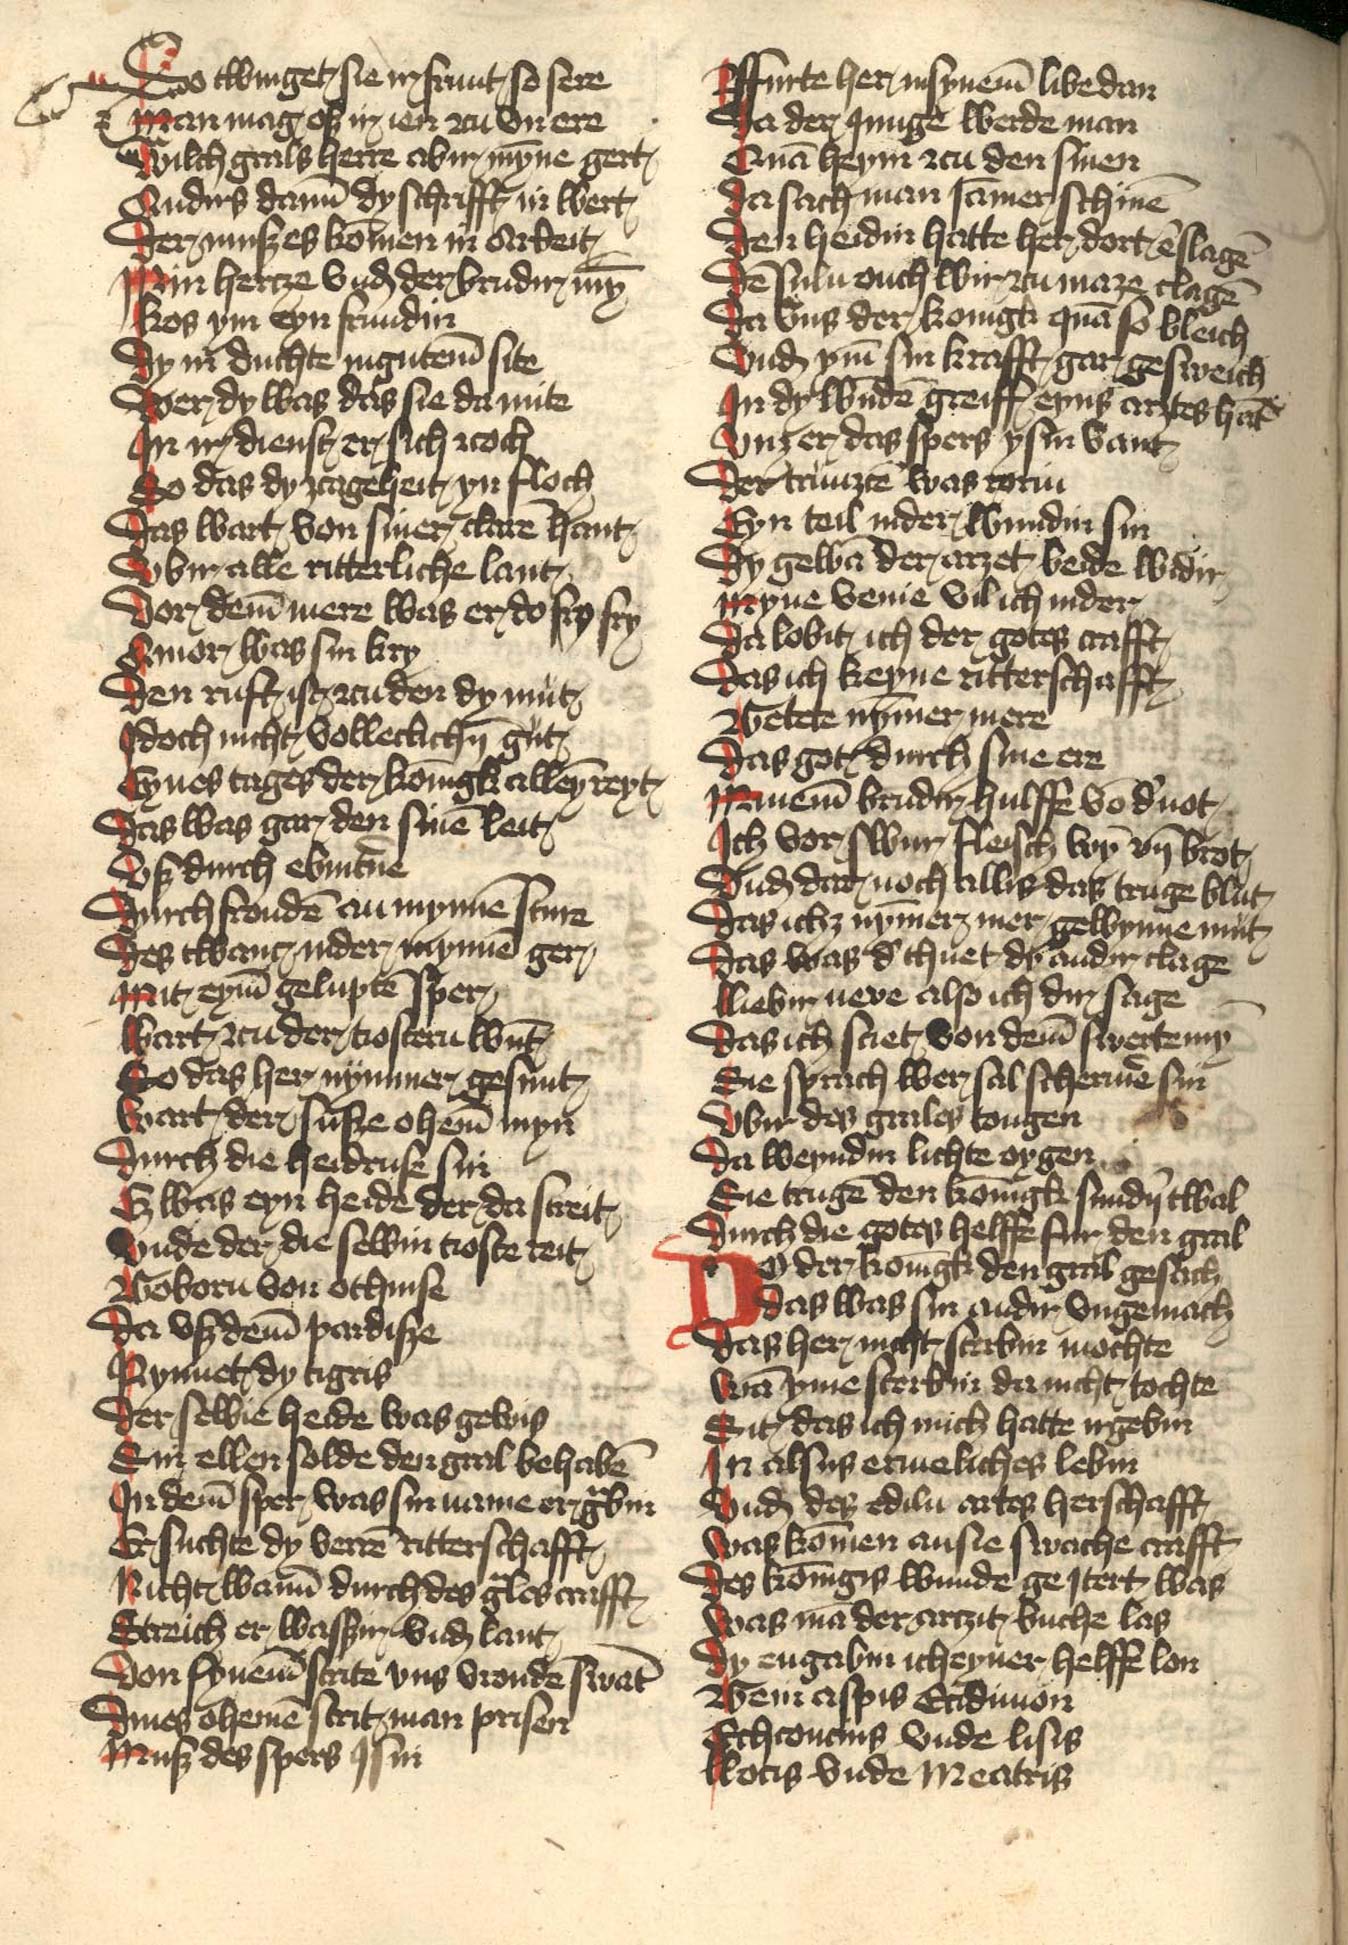 So twinget sie ir frunt so sere
Man mag es ir ien zcu vn ere
Wilch grals herre abir mȳne gert
Andirs dann̄ dy schrifft in wert
Der musz es komen in arbeit
Min hertze vnd der brudir mȳ
kos ym eyn frundin
Dy in duchte ingutem̄ site
Wer dy was das sie da mite
In ir dienst er sich zcoch
So das dy zcageheit yn floch
Das wart von siner clarē hant
Vbir alle ritterliche lant
Vor dem̄ mere was er do fry fry
Amor was sin kry
Den ruft ist zcu den dy mut
Idoch nicht volleclichȳ gut
Eynes tages der kōnigk alleȳ reyt
Das was gar den sinē leit
Vsz durch ebintüre
Durch froudē an mynnē sture
Des twanc inder mynnē ger
Mit eym̄ geluptē sper
Wart zcu der tiostern wnt
So das her nymmer gesunt
Wart der susze ohem̄ myn
Durch die heidruse sin
Es was eyn heide der da streit
Vnde der die selbin tioste reit
Geborn von othnise
Da vsz dem̄ pardisze
Rynnet dy tigris
Der selbie heide was gewis
Sin ellen solde den gral behabē
In dem̄ sper was sin name er grabin
Er suchte dy verrē ritterschafft
Nicht wann̄ durch des grales crafft
Streich er waszir vnd lant
Von synem̄ strite vns vroude swāt
Dines ohemē strit man prisen
Musz des spers ysin
Ffurte her in synem̄ libe dan
Da der junge werde man
Quā heym zcu den sinen
Da sach man jamer schinē
Den heidin hatte her dort eslagē
Dē sulu ouch wir zcu maze clagē
Da vns der konigk quā so bleich
Vnd ym̄ sin krafft gar gesweich
In dy wndē greiff eyns arztes hāt
Vnz er das spers ysin vant
Der trunzcē was rorin
Eyn teil inder wundin sin
Dy gewā der arzet beide widir
Myne venie vil ich nider
Da lobit ich der gotes crafft
Das ich keyne ritterschafft
Getete nȳmer mere
Das got durch sine ere
Minem̄ brudir hulffe vō d' not
Ich vor swur fleisch wȳ vn̄ brot
Vnd dar noch allis das truge blut
Das ichz nȳmer mer gewynne mut
Das was d' thuet dy andir clage
Liebir neve also ich dir sage
Das ich sciet von dem̄ swerte mȳ
Sie sprach wer sal schermē sin
Vbir des grales tougen
Da weyndin lichte oygen
Sie trugē den kōnigk sundȳ twal
Durch die gotes helffe fur den gral
Do der kōnigk den gral gesach
Das was sin andir vngemach
Das her nicht sterbin mochte
Wā yme sterbin da nicht tochte
Sit das ich mich hatte irgebin
In alsus ermeliches lebin
Vnd des ediln artes herschafft
Was komen an sie swache crafft
Des kōnigis wunde geitert was
Was mā der arczit buche las
Dy engabin icheyner helffe lon
Gein aspis Ecidimon
Ethcontius vnde lisis
Iecis vnde Meatris